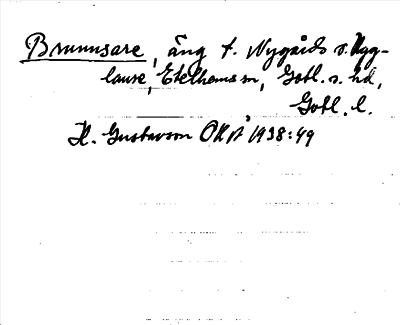 Brunnsare, äng t. Nygårds o. Ugg-
lause, Etelhems sn, Gotl. s. hd,
Gotl. l.
H. Gustavson OKÅ 1938:49